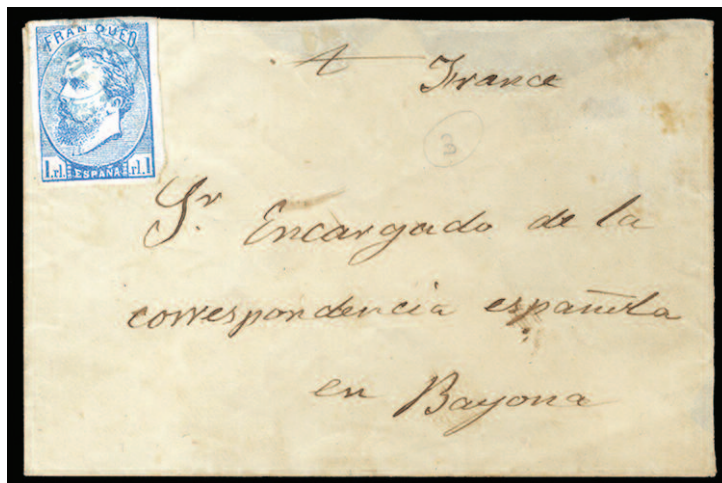 FRANQUEO
1 rl. ESPAÑA rl. 1
France
Sr Encargado de la
correspondencia española
en Bayona